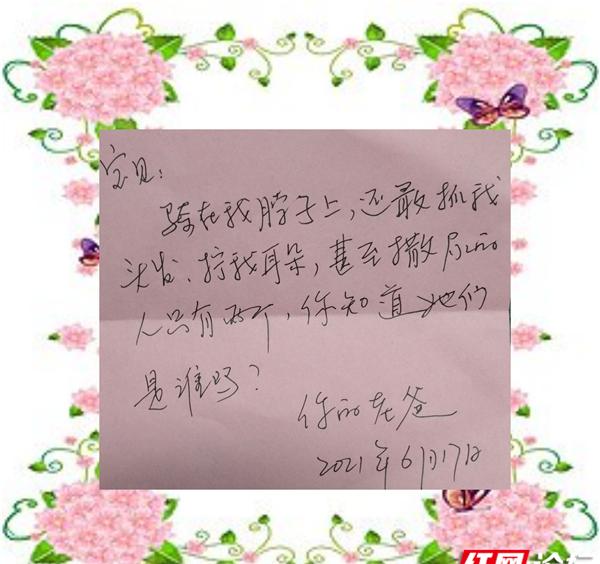 宝贝:
骑在我脖子上,还敢抓我
头发、拧我耳朵,甚至撒尿的
人只有两个,你知道她们
是谁吗?
你的老爸
2021年6月17日
红网论坛